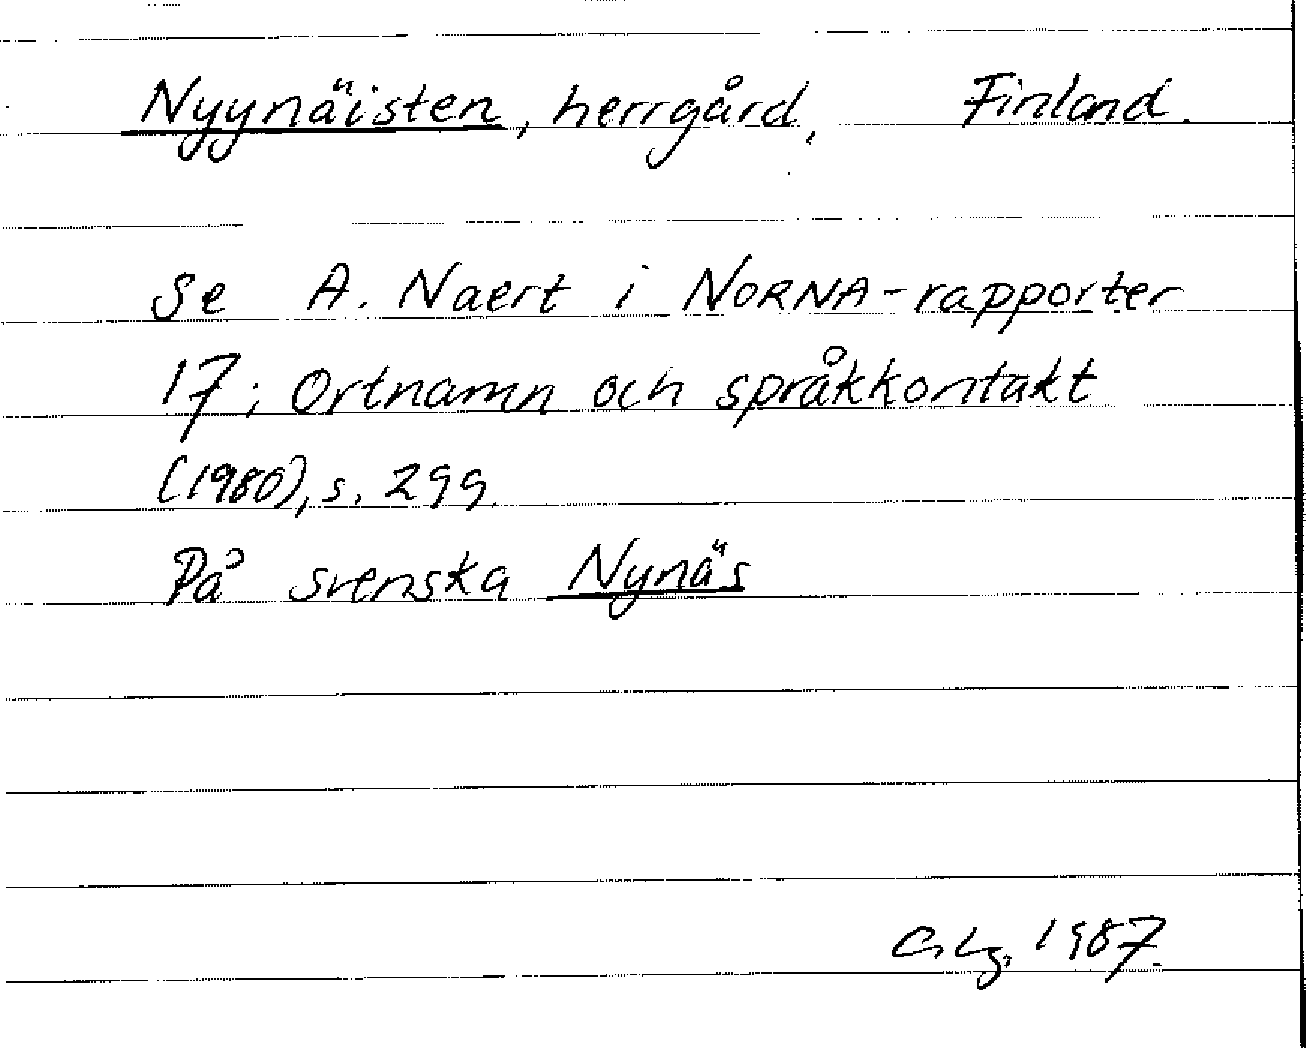 Nyynäisten, herrgård, Finland.
Se A. Naert i NORNA-rapporter
17; Ortnamn och språkkontakt
(1980), s. 299.
På svenska Nynäs
C. Lg. 1987.